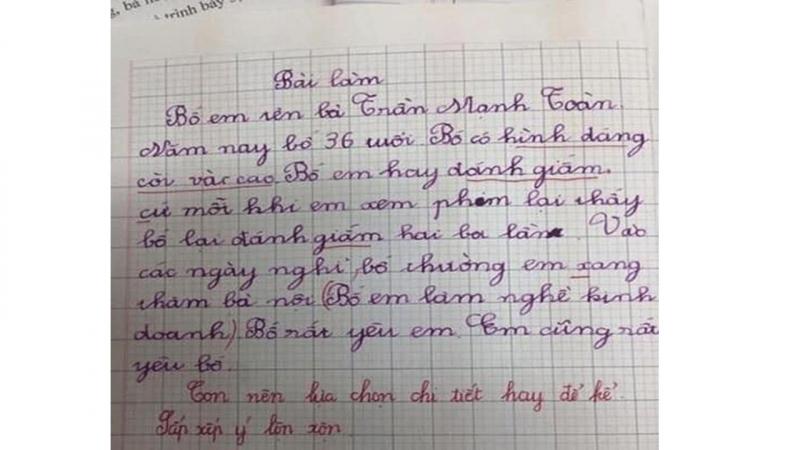 trình bày
Bài làm
Bố em tên là Trần Mạnh Toàn.
Năm nay bố 36 tuổi. Bố có hình dáng
còi và cao. Bố em hay đánh giắm.
cứ mỗi khi em xem phim lại thấy
bố lại đánh giắm hai ba lần. Vào
các ngày nghỉ, bố thường em xang
thăm bà nội (Bố em làm nghề kinh
doanh). Bố rất yêu em. Em cũng rất
yêu bố.
Con nên lựa chọn chi tiết hay để kể.
Sắp xếp ý lộn xộn.